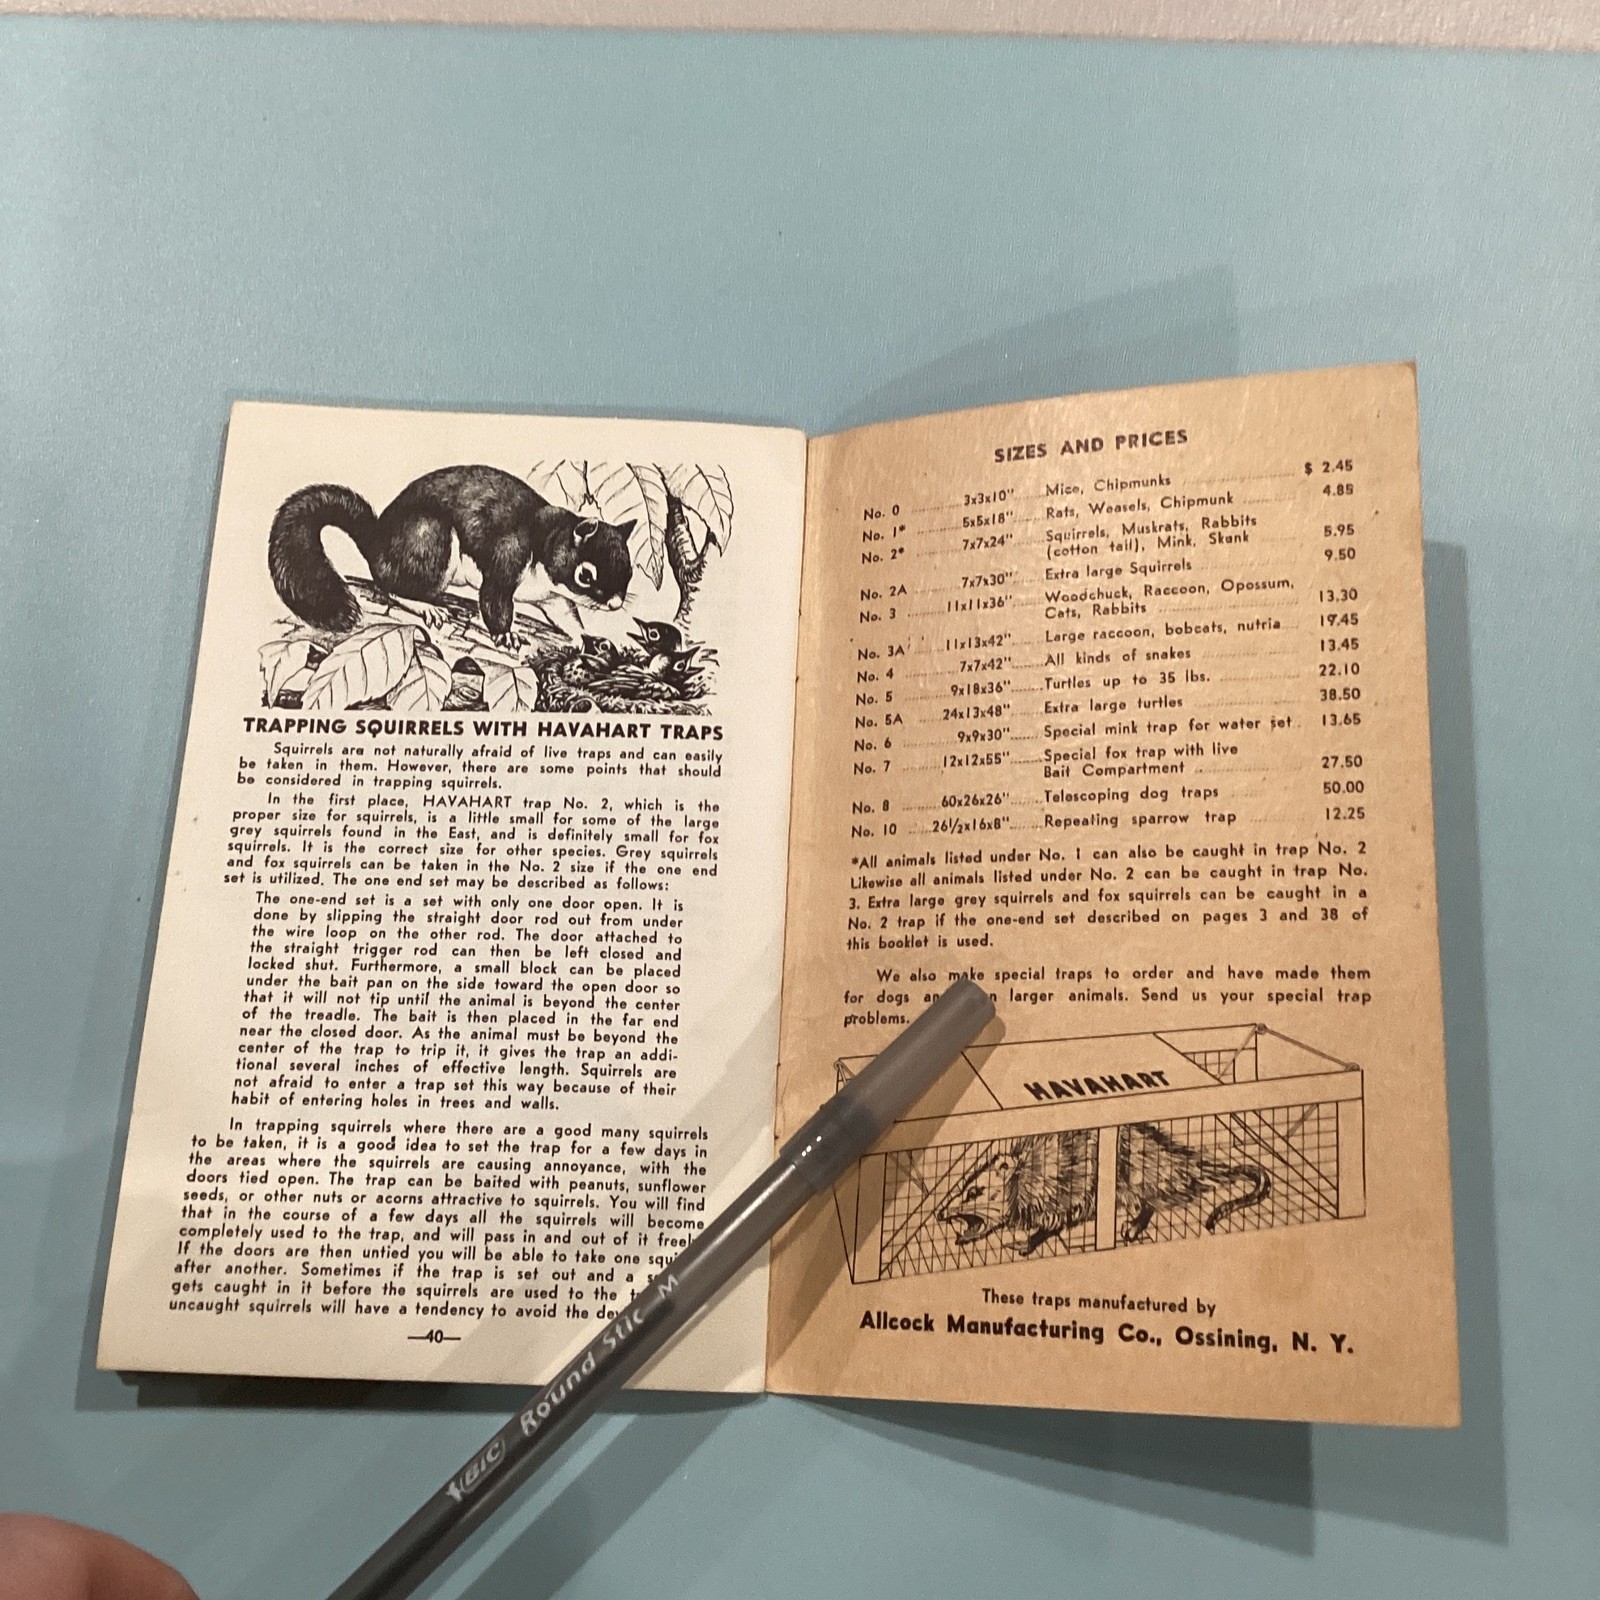 TRAPPING SQUIRRELS WITH HAVAHART TRAPS
Squirrels are not naturally afraid of live traps and can easily
be taken in them. However, there are some points that should
be considered in trapping squirrels.
In the first place, HAVAHART trap No. 2, which is the
proper size for squirrels, is a little small for some of the large
grey squirrels found in the East, and is definitely small for fox
squirrels. It is the correct size for other species. Grey squirrels
and fox squirrels can be taken in the No. 2 size if the one end
set is utilized. The one end set may be described as follows:
The one-end set is a set with only one door open. It is
done by slipping the straight door rod out from under
the wire loop on the other rod. The door attached to
the straight trigger rod can then be left closed and
locked shut. Furthermore, a small block can be placed
under the bait pan on the side toward the open door so
that it will not tip until the animal is beyond the center
of the treadle. The bait is then placed in the far end
near the closed door. As the animal must be beyond the
center of the trap to trip it, it gives the trap an addi-
tional several inches of effective length. Squirrels are
not afraid to enter a trap set this way because of their
habit of entering holes in trees and walls.
In trapping squirrels where there are a good many squirrels
to be taken, it is a good idea to set the trap for a few days in
the areas where the squirrels are causing annoyance, with the
doors tied open. The trap can be baited with peanuts, sunflower
seeds, or other nuts or acorns attractive to squirrels. You will find
that in the course of a few days all the squirrels will become
completely used to the trap, and will pass in and out of it
If the doors are then untied you will be able to take one
after another. Sometimes if the trap is set out and a
gets caught in it before the squirrels are used to the
uncaught squirrels will have a tendency to avoid the
—40—
SIZES AND PRICES
No. 0 3x3x10" Mice, Chipmunks $ 2.45
No. 1* 5x5x18" Rats, Weasels, Chipmunk 4.85
No. 2* 7x7x24" Squirrels, Muskrats, Rabbits
(cotton tail), Mink, Skunk 5.95
No. 2A 7x7x30" Extra large Squirrels 9.50
No. 3 11x11x36" Woodchuck, Raccoon, Opossum,
Cats, Rabbits 13.30
No. 3A 11x13x42" Large raccoon, bobcats, nutria 19.45
No. 4 7x7x42" All kinds of snakes 13.45
No. 5 9x18x36" Turtles up to 35 lbs. 22.10
No. 5A 24x13x48" Extra large turtles 38.50
No. 6 9x9x30" Special mink trap for water set 13.65
No. 7 12x12x55" Special fox trap with live
Bait Compartment 27.50
No. 8 60x26x26" Telescoping dog traps 50.00
No. 10 26½x16x8" Repeating sparrow trap 12.25
*All animals listed under No. 1 can also be caught in trap No. 2
Likewise all animals listed under No. 2 can be caught in trap No.
3. Extra large grey squirrels and fox squirrels can be caught in a
No. 2 trap if the one-end set described on pages 3 and 38 of
this booklet is used.
We also make special traps to order and have made them
for dogs larger animals. Send us your special trap
problems.
HAVAHART
These traps manufactured by
Allcock Manufacturing Co., Ossining, N. Y.
BIC Round Stic M